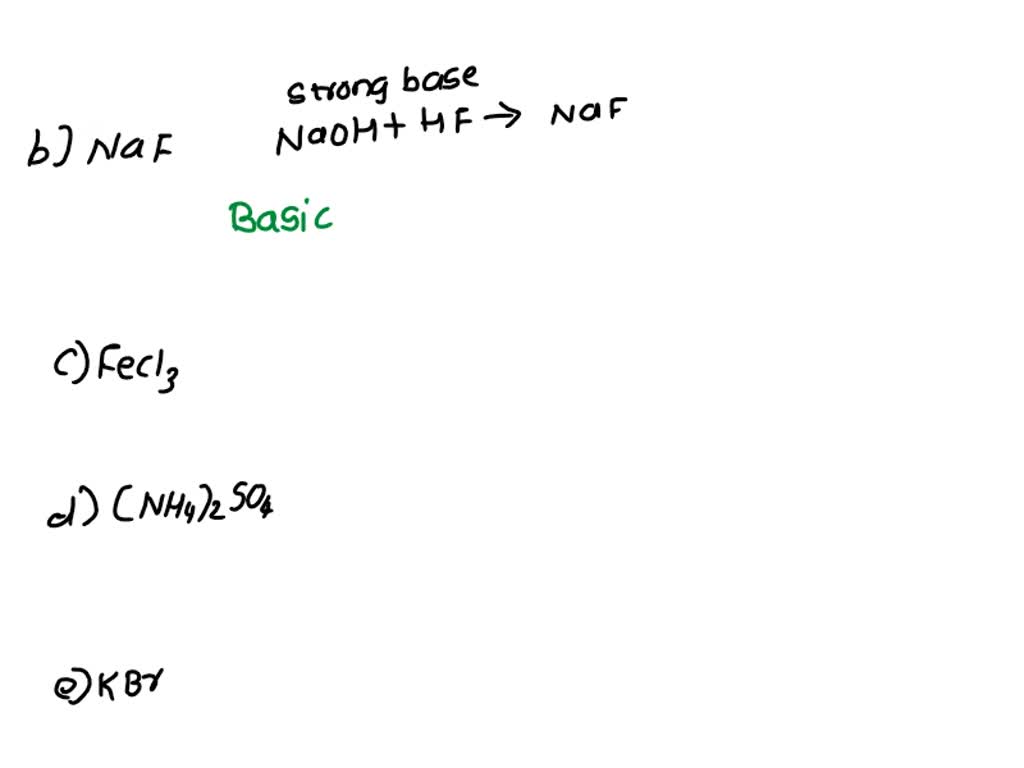 strong base
b) NaF NaOH + HF → NaF
Basic
c) FeCl3
d) (NH4)2SO4
e) KBr